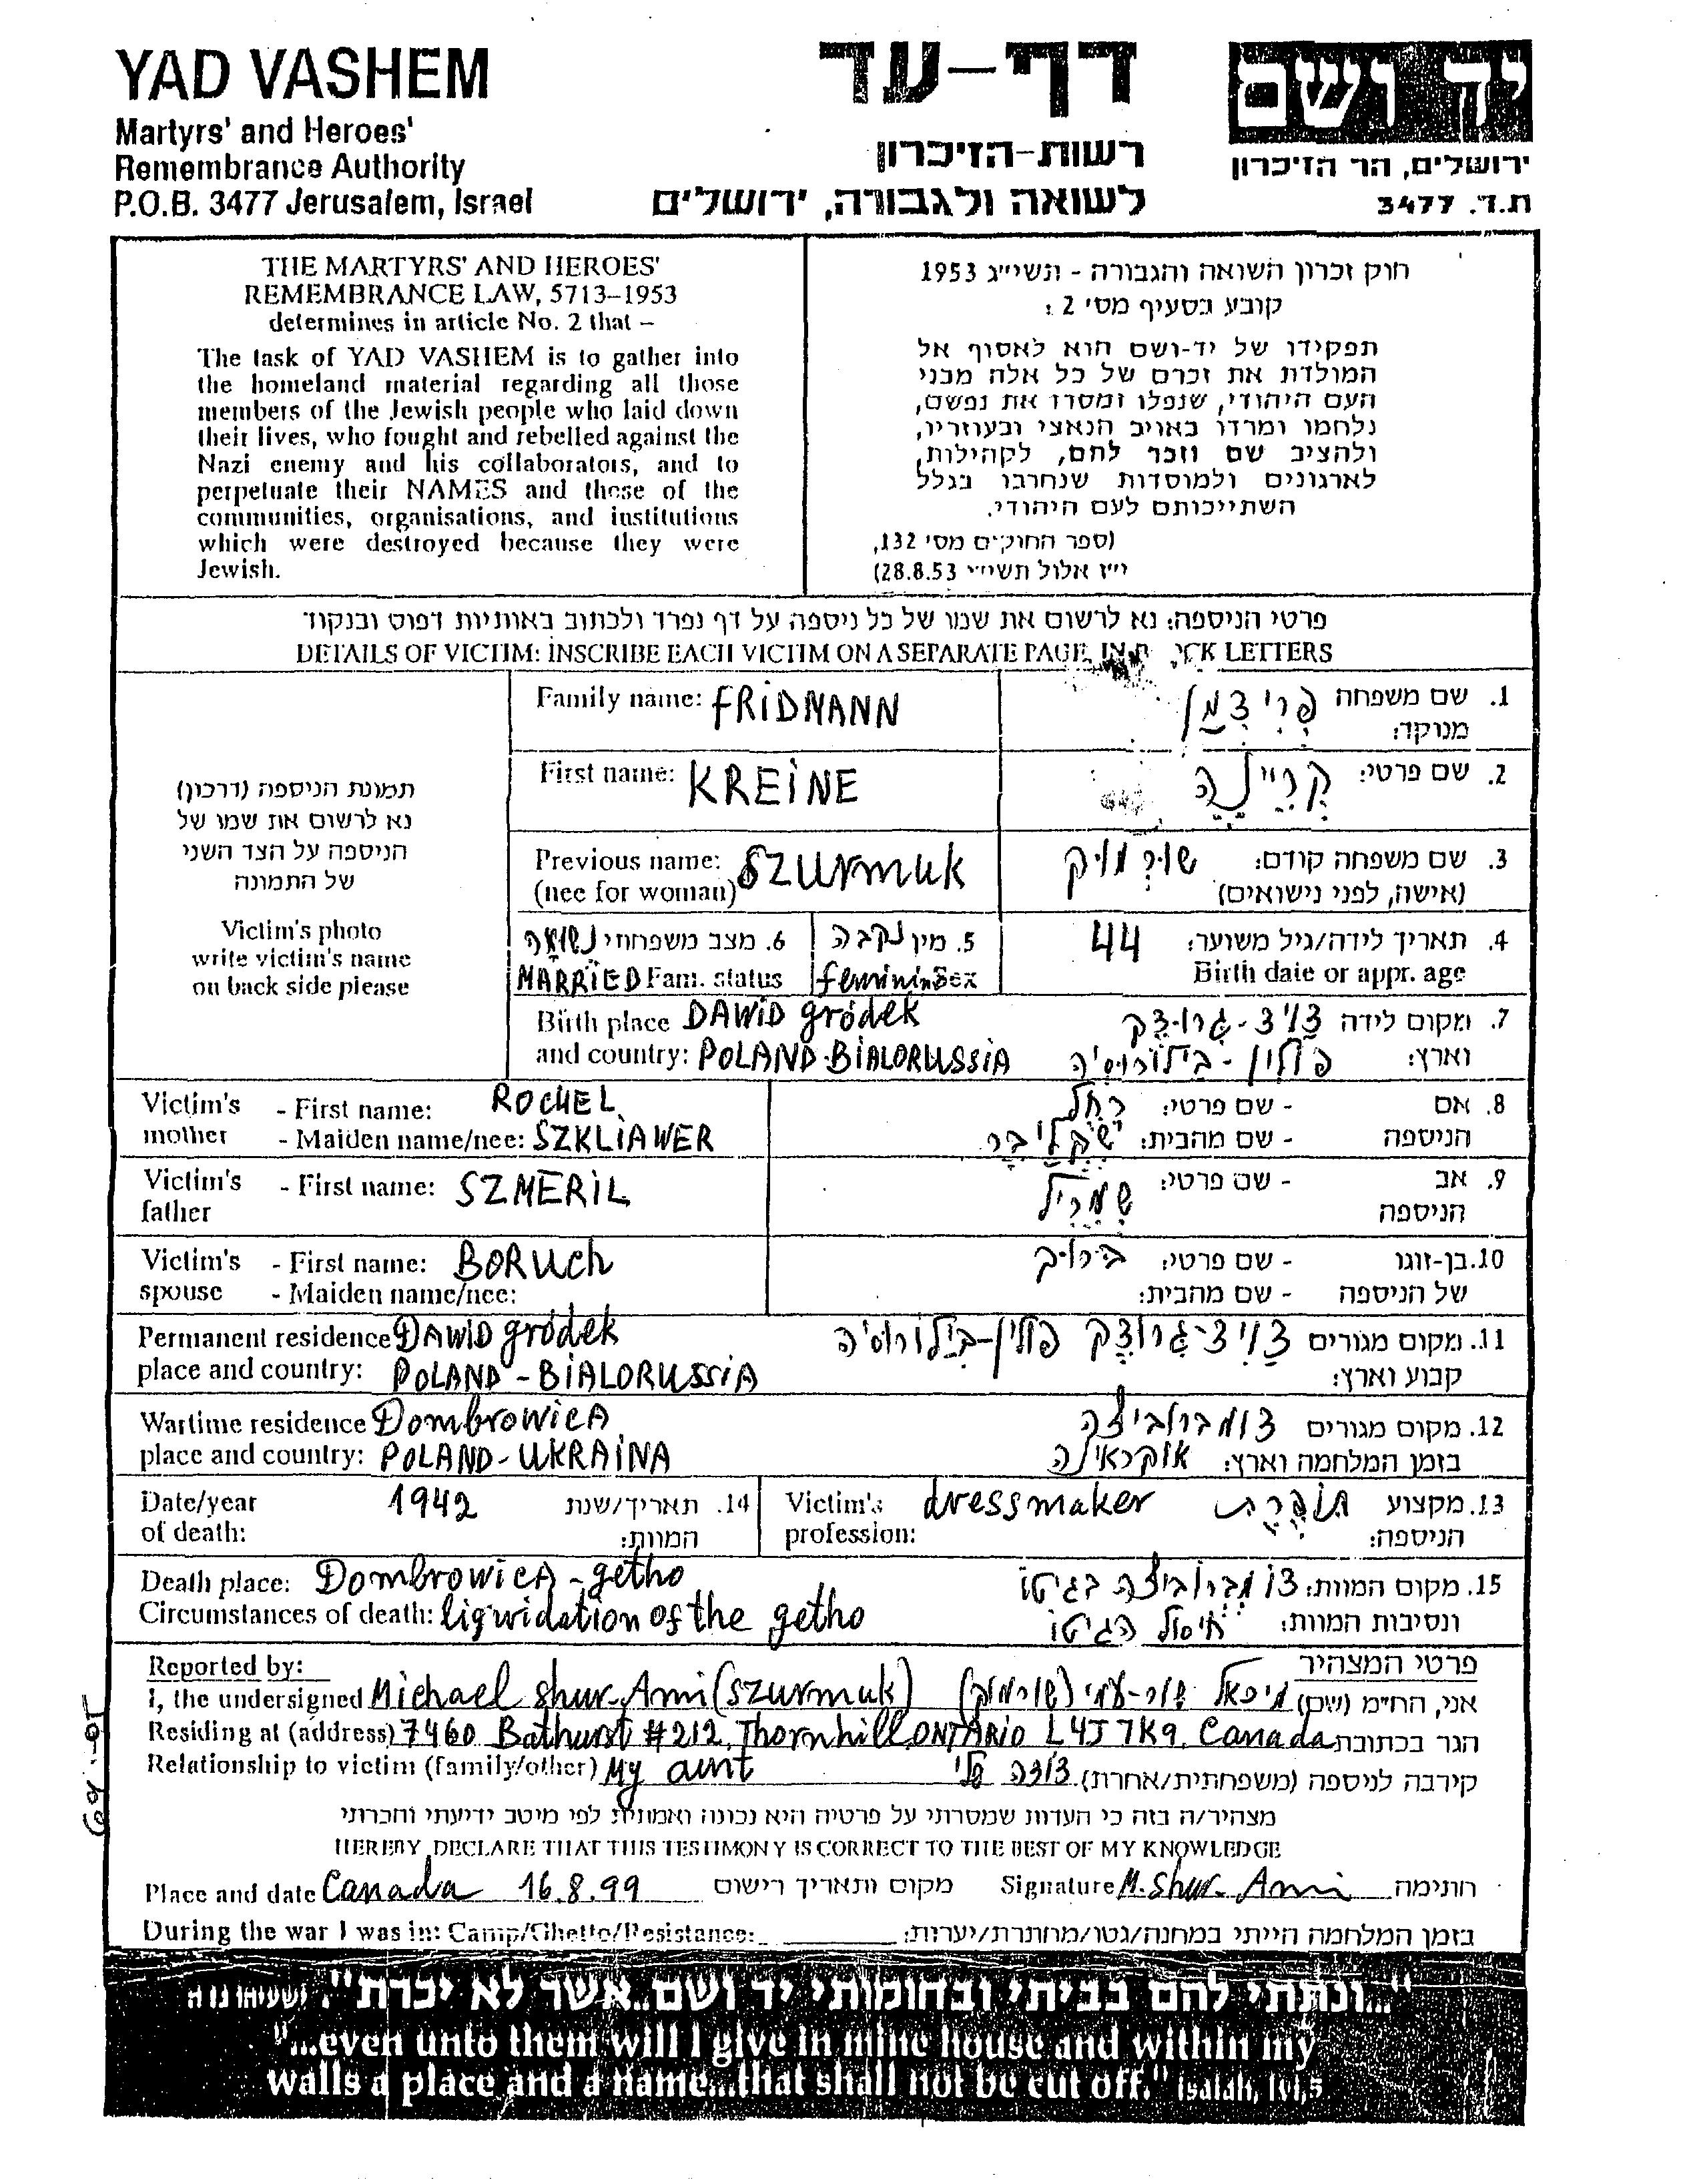 YAD VASHEM
Martyrs' and Heroes'
Remembrance Authority
P.O.B. 3477 Jerusalem, Israel
דף-עד
רשות-הזיכרון
לשואה ולגבורה, ירושלים
יד ושם
ירושלים, הר הזיכרון
ת.ד. 3477
THE MARTYRS' AND HEROES'
REMEMBRANCE LAW, 5713–1953
determines in article No. 2 that –
The task of YAD VASHEM is to gather into
the homeland material regarding all those
members of the Jewish people who laid down
their lives, who fought and rebelled against the
Nazi enemy and his collaborators, and to
perpetuate their NAMES and those of the
communities, organisations, and institutions
which were destroyed because they were
Jewish.
חוק זכרון השואה והגבורה - תשי״ג 1953
קובע בסעיף מס׳ 2 :
תפקידו של יד-ושם הוא לאסוף אל
המולדת את זכרם של כל אלה מבני
העם היהודי, שנפלו ומסרו את נפשם,
נלחמו ומרדו באויב הנאצי ובעוזריו,
ולהציב שם וזכר להם, לקהילות,
לארגונים ולמוסדות שנחרבו בגלל
השתייכותם לעם היהודי.
(ספר החוקים מס׳ 132,
י״ז אלול תשי״ 28.8.53)
פרטי הניספה: נא לרשום את שמו של כל ניספה על דף נפרד ולכתוב באותיות דפוס ובנקוד
DETAILS OF VICTIM: INSCRIBE EACH VICTIM ON A SEPARATE PAGE, IN LETTERS
תמונת הניספה (דרכון)
נא לרשום את שמו של
הניספה על הצד השני
של התמונה
Victim's photo
write victim's name
on back side please
Family name: FRIDMANN
1. שם משפחה פרידמן
מנוקד:
First name: KREINE
2. שם פרטי: קריינה
Previous name: SZURMUK
(nee for woman)
3. שם משפחה קודם: שורמוק
(אישה, לפני נישואים)
6. מצב משפחתי נשואה
MARRIED Fam. status
5. מין נקבה
feminin Sex
4. תאריך לידה/גיל משוער: 44
Birth date or appr. age
Birth place DAWID gródek
and country: POLAND-BIALORUSSIA
7. מקום לידה דויד-גרודק
וארץ: פולין - בילורוסיה
Victim's - First name: ROCHEL
mother - Maiden name/nee: SZKLIAWER
8. אם - שם פרטי: רחל
הניספה - שם מהבית: שקליבר
Victim's - First name: SZMERIL
father
9. אב - שם פרטי: שמריל
הניספה
Victim's - First name: BORUCH
spouse - Maiden name/nee:
10. בן-זוגו - שם פרטי: ברוך
של הניספה - שם מהבית:
Permanent residence DAWID gródek
place and country: POLAND - BIALORUSSIA
11. מקום מגורים דויד-גרודק פולין-בילורוסיה
קבוע וארץ:
Wartime residence DombrowicA
place and country: POLAND - UKRAINA
12. מקום מגורים דומברוביצה
בזמן המלחמה וארץ: אוקראינה
Date/year 1942 14. תאריך/שנת
of death: המוות:
Victim's dressmaker
profession:
13. מקצוע תופרת
הניספה:
Death place: DombrowicA - getho
Circumstances of death: liqwidation of the getho
15. מקום המוות: דומברוביצה בגיטו
ונסיבות המוות: חיסול הגיטו
Reported by:
פרטי המצהיר
I, the undersigned Michael Shur-Ami (SZurmuk)
אני, הח״מ (שם) מיכאל שור-עמי (שורמוק)
Residing at (address) 7460 Bathurst #212, Thornhill, ONTARIO L4J 7K9, Canada הגר בכתובת
Relationship to victim (family/other) My aunt
קירבה לניספה (משפחתית/אחרת) דודה שלי
מצהיר/ה בזה כי העדות שמסרתי על פרטיה היא נכונה ואמתית לפי מיטב ידיעתי והכרתי
HEREBY DECLARE THAT THIS TESTIMONY IS CORRECT TO THE BEST OF MY KNOWLEDGE
Place and date Canada 16.8.99 מקום ותאריך רישום Signature M. Shur-Ami חתימה
During the war I was in: Camp/Ghetto/Resistance: בזמן המלחמה הייתי במחנה/גטו/מחתרת/יערות:
"...ונתתי להם בביתי ובחומותי יד ושם..אשר לא יכרת". ישעיהו נו ה
"...even unto them will I give in mine house and within my
walls a place and a name...that shall not be cut off." Isaiah, lvi,5